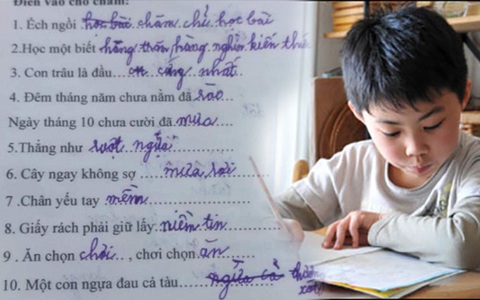 Điền vào chỗ chấm:
1. Ếch ngồi học bài chăm chỉ học bài
2.Học một biết hằng trăm hàng nghìn kiến thức
3. Con trâu là đầu... ăn cằng nhất
4. Đêm tháng năm chưa nằm đã rào......
Ngày tháng 10 chưa cười đã mưa.......
5.Thẳng như ruột ngựa......
6. Cây ngay không sợ ..... mưa rơi
7 .Chân yếu tay mềm................
8. Giấy rách phải giữ lấy.niềm tin............
9 . Ăn chọn chơi.. , chơi chọn ăn...
10. Một con ngựa đau cả tàu ngựa cả thương xót